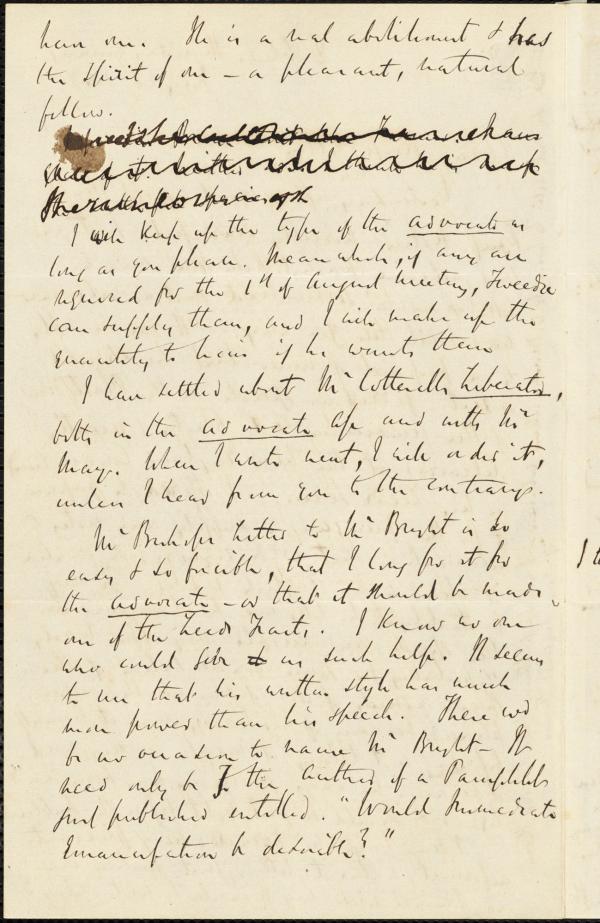 have one. He is a real abolitionist & has
the spirit of one – a pleasant, natural
fellow.
I will keep up the type of the Advocate as
long as you please. Meanwhile, if any are
required for the 1st of August meeting, Tweedie
can supply them, and I will make up the
quantity to him if he wants them
I have settled about Mr Cotterells Liberator,
both in the Advocate a/c and with Mr
May. When I write next, I will order it,
unless I hear from you to the contrary.
Mr Bishops Letter to Mr Bright is so
easy & so forcible, that I long for it for
the Advocate – or that it should be made
one of the Leeds Tracts. I know no one
who could give us such help. It seems
to me that his written style has much
more power than his speech. There wd
be no occasion to name Mr Bright – It
need only be To the Author of a Pamphlet
just published entitled. "Would Immediate
Emancipation be desirable?"
I